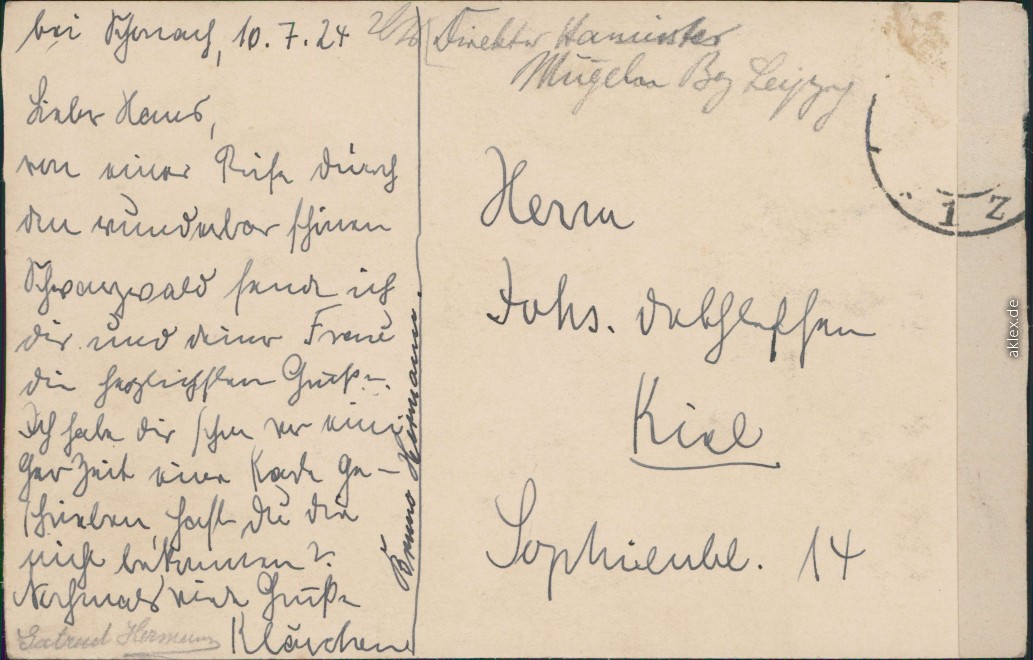 bei Schonach, 10.7.24
Lieber Hans,
von einer Reise durch
den wunderbar schönen
Schwarzwald sende ich
dir und deiner Frau
die herzlichsten Grüße.
Ich habe dir schon vor eini
ger Zeit eine Karte ge-
schrieben, hast du die
nicht bekommen?
Nochmals viele Grüße
Klärchen
Gertrud Hermann
Bruno Hermann.
Direktor
Mügeln Bez Leipzig
Herrn
Johs. Dethleffsen
Kiel
Sophienbl. 14
1 Z
aklex.de